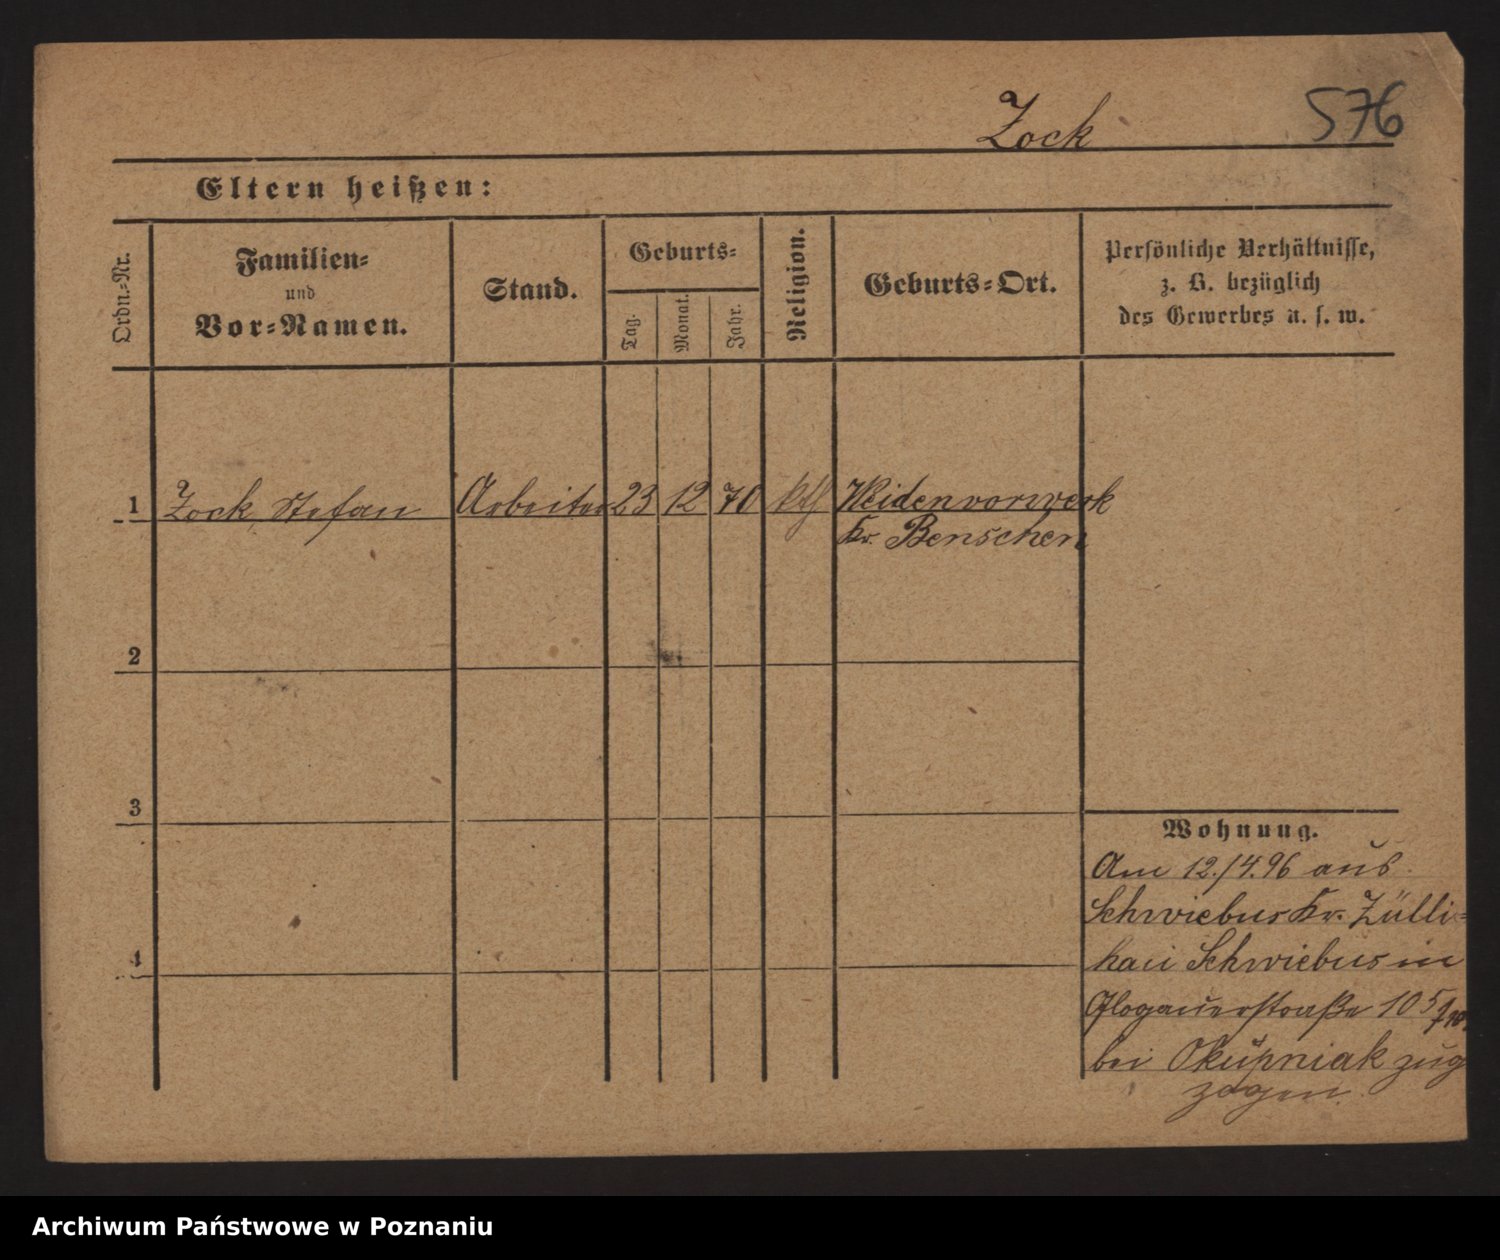 Zock
576
Eltern heißen:
Ordn.-Nr.
Familien-
und
Vor-Namen.
Stand.
Geburts-
Tag.
Monat.
Jahr.
Religion.
Geburts-Ort.
Persönliche Verhältnisse,
z. B. bezüglich
des Gewerbes u. s. w.
1 Zock Stefan Arbeiter 23 12 70 kth Weidenvorwerk
Kr. Benschen
2
3
4
Wohnung.
Am 12./4.96 aus
Schwiebus Kr. Zülli-
kau Schwiebus in
Glogauerstraße 105
bei Okupniak zug
zogen.
Archiwum Państwowe w Poznaniu